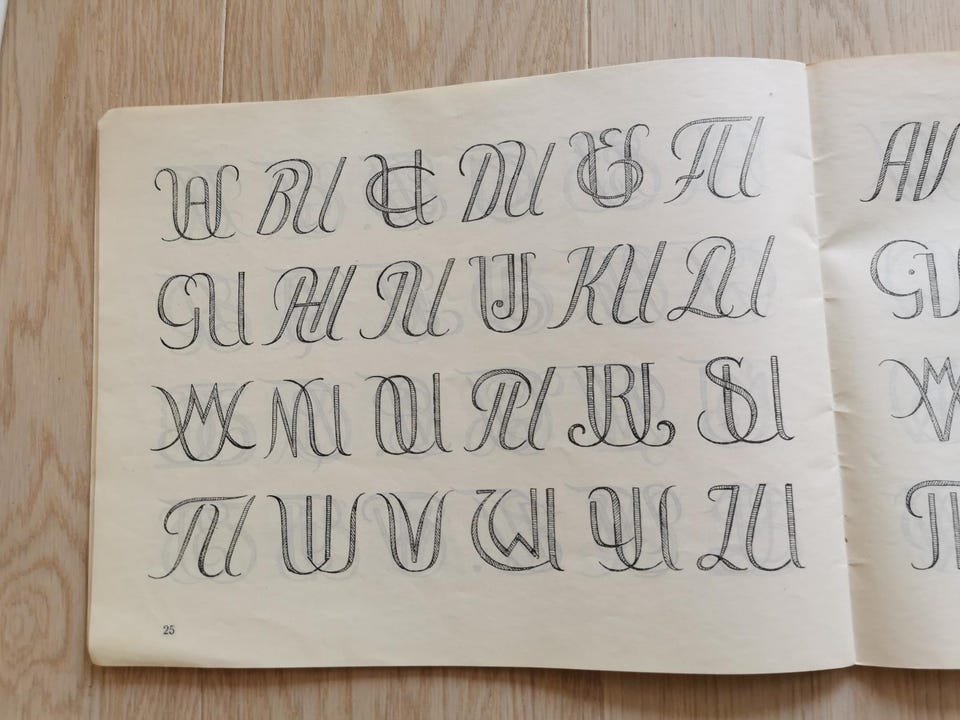 AU BU CU DU EU FU
GU HU IU JU KU LU
MU NU OU PU RU SU
TU UU VU WU YU ZU
25
AV
GV
MV